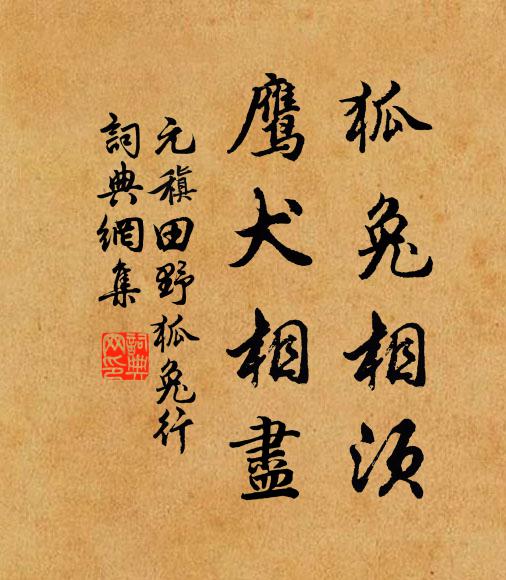 狐兔相須
鹰犬相盡
元稹田野狐兔行
詞典網集
詞典
网印